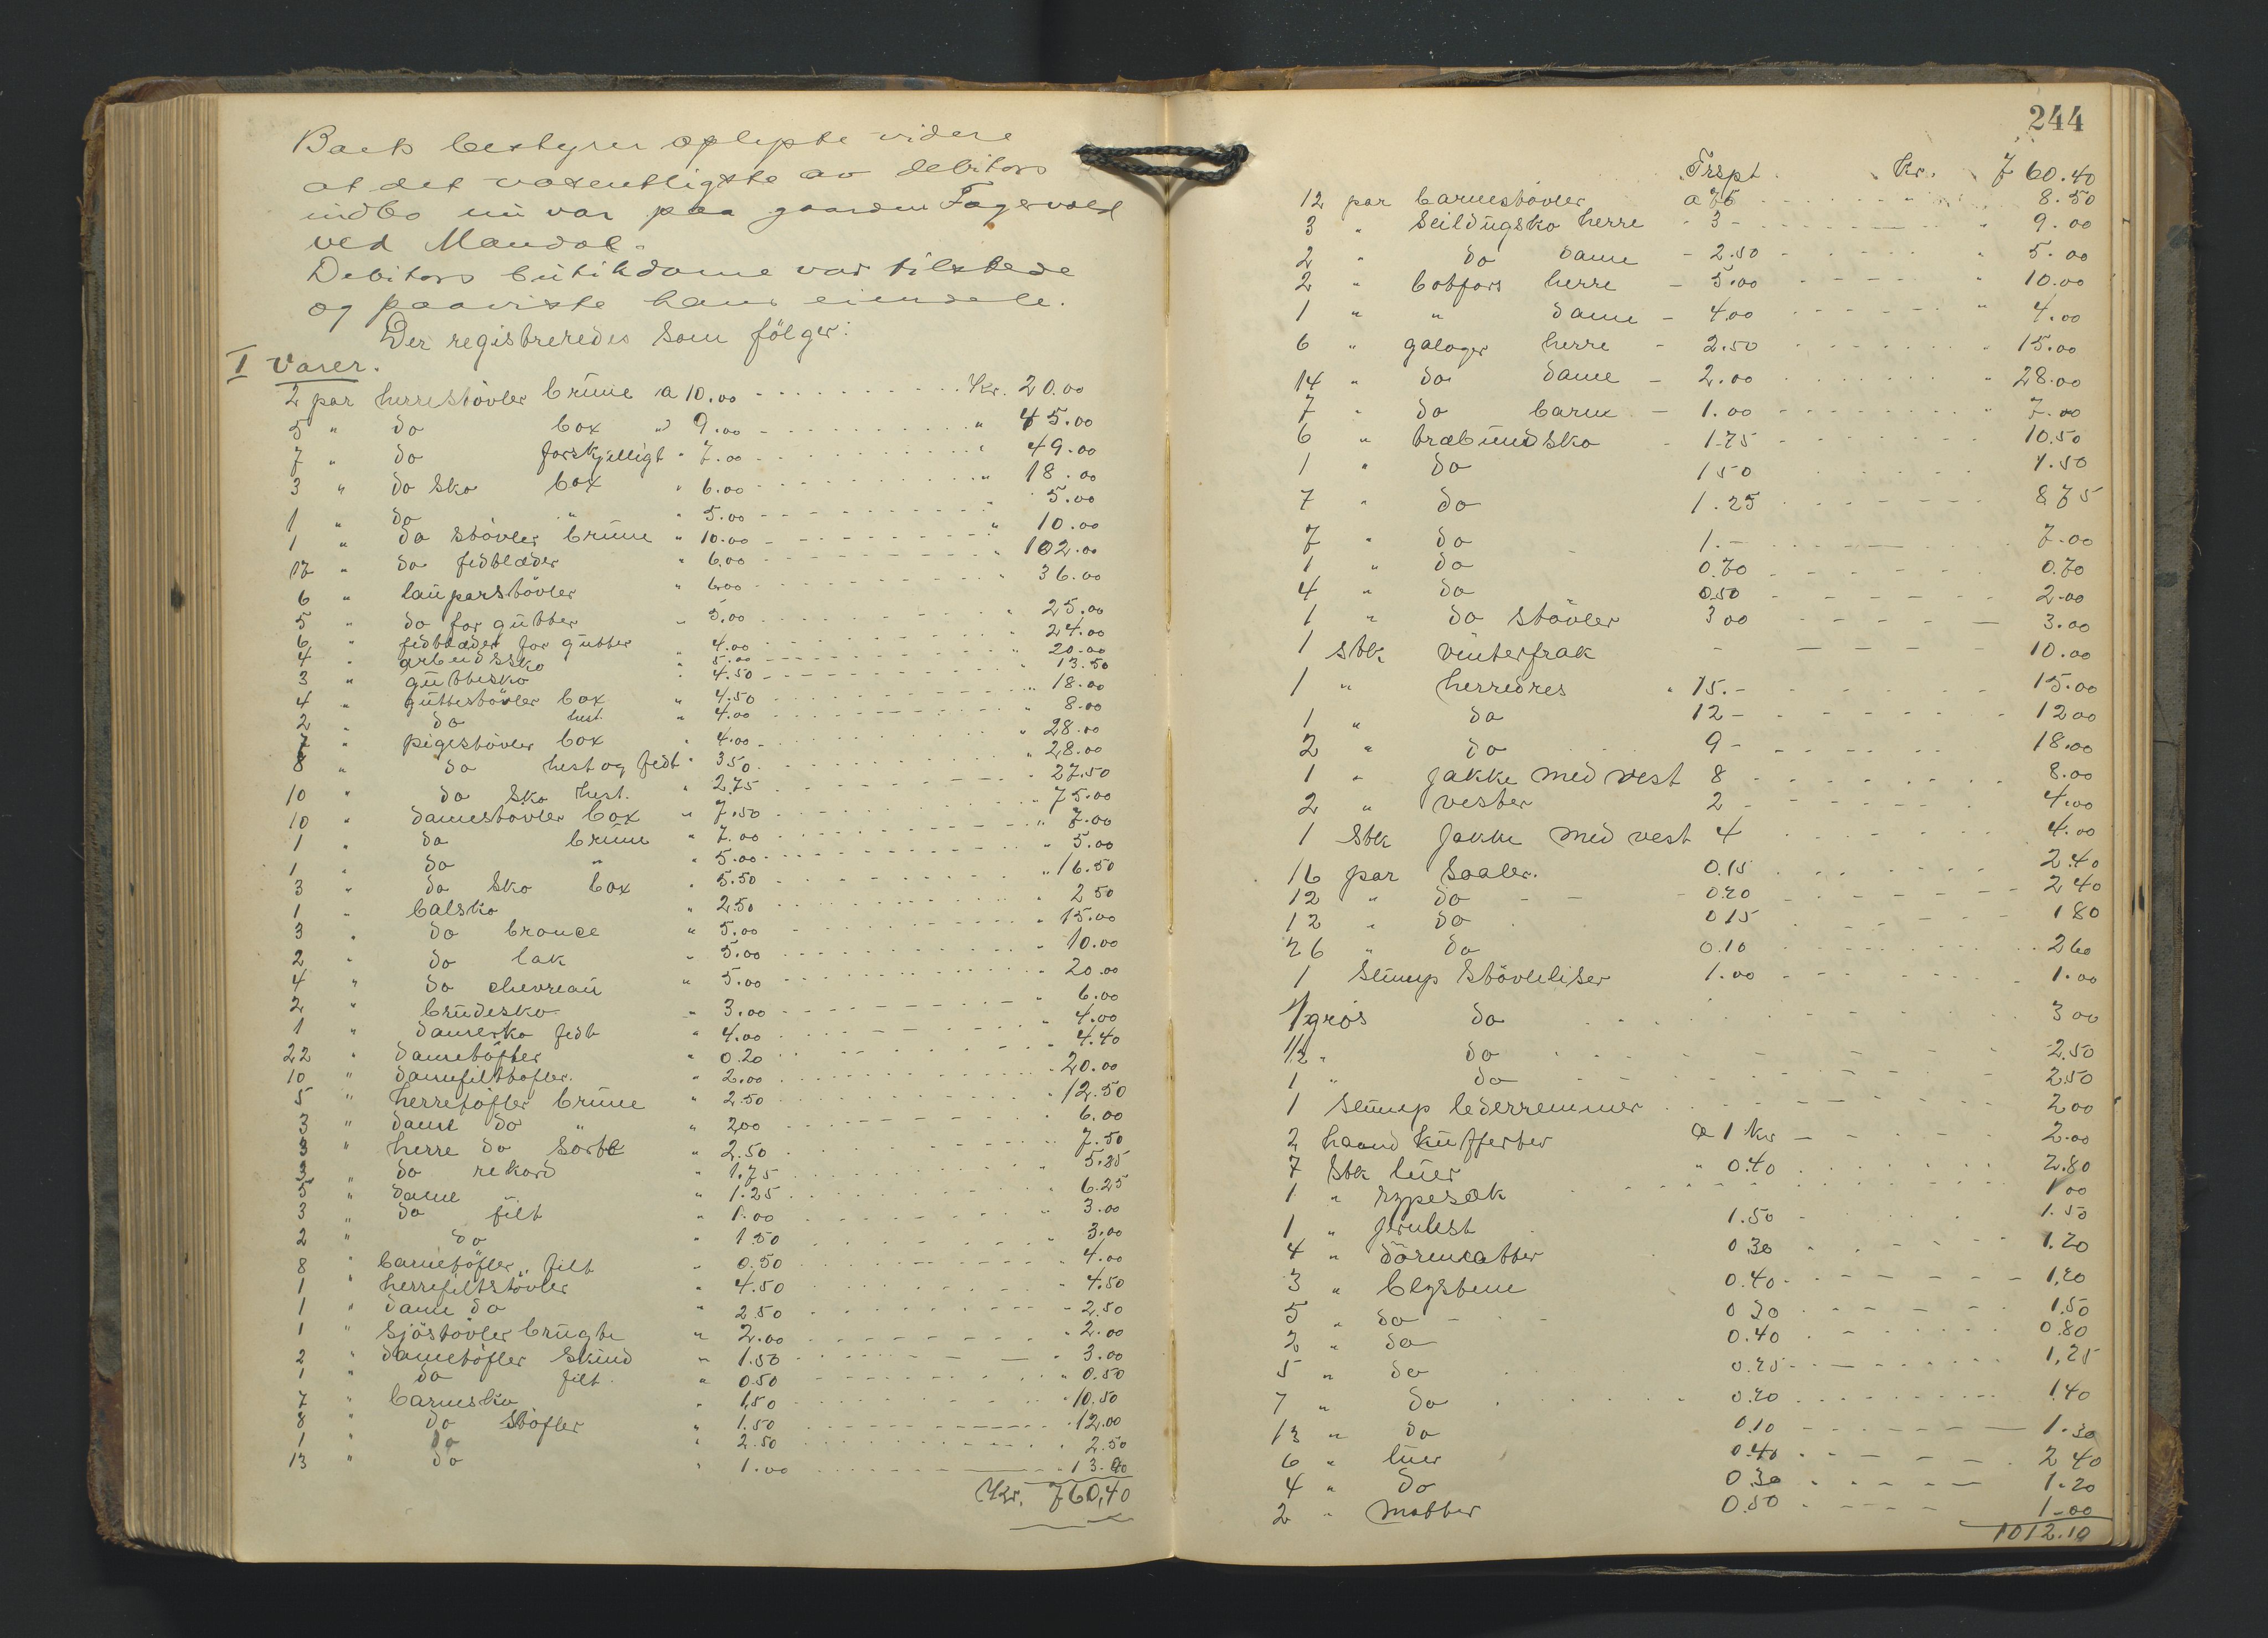 Boets bestyrer oplyste videre
at det væsentligste av debitors
indbo nu var paa gaarden Fagervold
ved Mandal.
Debitors butikdame var tilstede
og paaviste hans eiendele.
Der registreredes som følger:
I Varer.
2 par herrestövler brune a 10.00 Kr. 20.00
5 " do box " 9.00 " 45.00
7 " do forskjelligt " 7.00 " 49.00
3 " do sko box " 6.00 " 18.00
1 " do " " 5.00 " 5.00
1 " do stövler brune " 10.00 " 10.00
17 " do fedtlæder " 6.00 " 102.00
6 " lauparstövler " 6.00 36.00
5 " do for gutter " 5.00 " 25.00
6 " fedtlæder for gutter " 4.00 " 24.00
4 " arbeidssko " 5.00 " 20.00
3 " guttesko " 4.50 13.50
4 " guttestövler box " 4.50 " 18.00
2 " do hest. " 4.00 " 8.00
7 " pigestövler box " 4.00 " 28.00
8 " do hest og fedt " 3.50 " 28.00
10 " do sko hest. " 2.75 " 27.50
10 " damestövler box " 7.50 " 75.00
1 " do brune " 7.00 " 7.00
1 " do " " 5.00 " 5.00
3 " do sko box " 5.50 " 16.50
1 " balsko " 2.50 " 2.50
3 " do bronce " 5.00 " 15.00
2 " do lak " 5.00 " 10.00
4 " do chevreau " 5.00 " 20.00
2 " brudesko " 3.00 " 6.00
1 " damesko fedt " 4.00 " 4.00
22 " dametöfler " 0.20 " 4.40
10 " damefilttöfler. " 2.00 " 20.00
5 " herretöfler brune " 2.50 " 12.50
3 " dame do " " 2.00 " 6.00
3 " herre do sorte " 2.50 " 7.50
3 " do rekord " 1.75 " 5.25
5 " dame " 1.25 " 6.25
3 " do filt " 1.00 " 3.00
2 " do " 1.50 " 3.00
8 " barnetöfler filt " 0.50 " 4.00
1 " herrefiltstövler " 4.50 " 4.50
1 " dame do " 2.50 " 2.50
1 " sjöstövler brugte " 2.00 " 2.00
2 " dametöfler skind " 1.50 " 3.00
1 " do filt. " 0.50 " 0.50
7 " barnesko " 1.50 " 10.50
8 " do stöfler " 1.50 " 12.00
1 " do " 2.50 " 2.50
13 " do " 1.00 " 13.00
Kr. 760,40
244
Trspt. Kr. 760.40
12 par barnestövler a 75 " 8.50
3 " Seildugsko herre - 3 - " 9.00
2 " do dame - 2.50 " 5.00
2 " botfors herre - 5.00 " 10.00
1 " " dame - 4.00 " 4.00
6 " galoger herre - 2.50 " 15.00
14 " do dame - 2.00 " 28.00
7 " do barne - 1.00 " 7.00
6 " træbundsko - 1.75 10.50
1 " do 1 50 1.50
7 " do 1.25 8 75
7 " do 1.- 7.00
1 " do 0.70 0.70
4 " do 0.50 2.00
1 " do stövler 3 00 3.00
1 stk vinterfrak 10.00
1 " herredres " 15.- 15.00
1 " do 12 - 12 00
2 " do 9 - 18.00
1 " jakke med vest 8 8.00
2 " vester 2 4.00
1 stk jakke med vest 4 4.00
16 par saaler. 0.15 2.40
12 " do 0.20 2 40
12 " do 0 15 1 80
26 " do 0.10 2 60
1 slump stövleliser 1.00 1.00
1 gros do 3 00
1/2 " do 2.50
1 " do 2.50
1 slump lederremmer 2 00
2 haand kufferter a 1 kr 2.00
7 stk luer " 0.40 2.80
1 " rypesæk 1 00
1 " 1.50 1.50
4 " dörmatter 0 30 1.20
3 " 0.40 1,20
5 " do 0 30 1.50
2 " do 0.40 0.80
5 " do 0.25 1,25
7 " do 0.20 1.40
13 " do 0.10 1.30
6 " luer 0.40 2 40
4 " do 0.30 1.20
2 " matter 0.50 1.00
1012.10